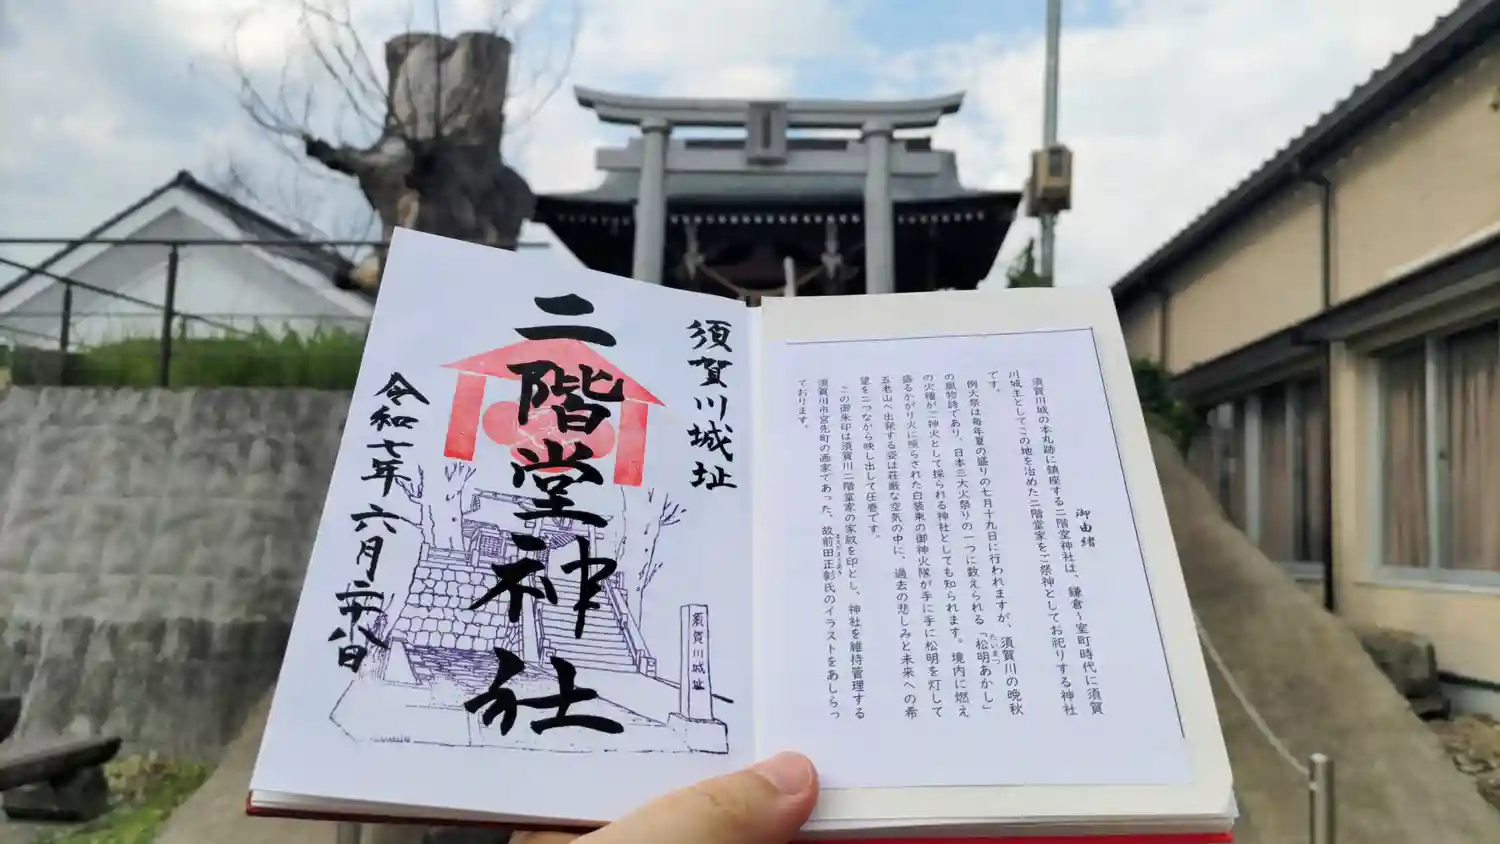 須賀川城址
二階堂神社
令和七年六月二十八日
須賀川城址
御由緒
須賀川城の本丸跡に鎮座する二階堂神社は、鎌倉～室町時代に須賀
川城主としてこの地を治めた二階堂家をご祭神としてお祀りする神社
です。
例大祭は毎年夏の盛りの七月十九日に行われますが、須賀川の晩秋
の風物詩であり、日本三大火祭りの一つに数えられる「松明あかし」
たいまつ
の火種がご神火として採られる神社としても知られます。境内に燃え
盛るかがり火に照らされた白装束の御神火隊が手に手に松明を灯して
五老山へ出発する姿は荘厳な空気の中に、過去の悲しみと未来への希
望を二つながら映し出して圧巻です。
この御朱印は須賀川二階堂家の家紋を印とし、神社を維持管理する
須賀川市宮先町の画家であった、故前田正彰氏のイラストをあしらっ
ております。